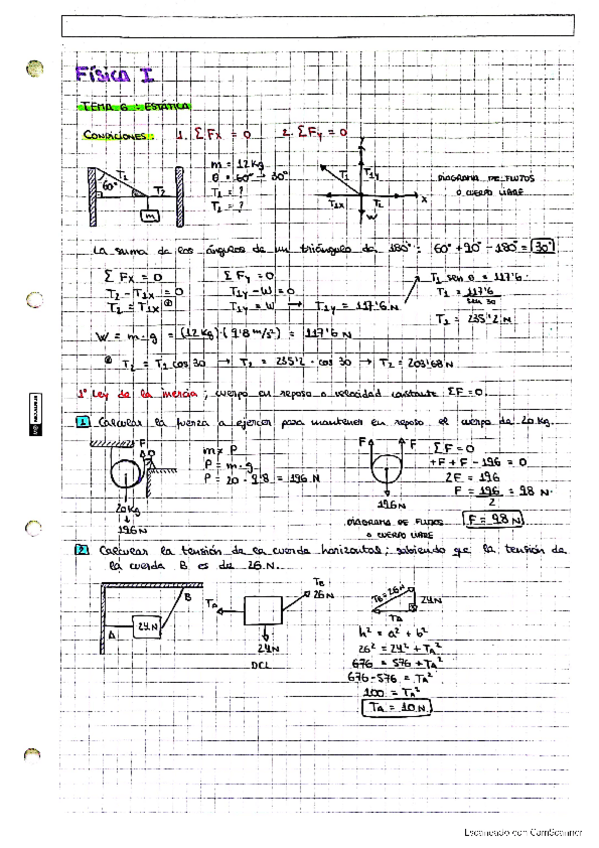 Física I
TEMA 6: ESTÁTICA
CONDICIONES: 1. ΣFx = 0 2. ΣFy = 0
60° T1 T2 m
m = 12 Kg
θ = 60° → 30°
T1 = ?
T2 = ?
Y T1 T1y T1x T2 X W
DIAGRAMA DE FLUJOS
O CUERPO LIBRE
La suma de los ángulos de un triángulo da 180°: 60° + 90° - 180° = 30°
ΣFx = 0
T2 - T1x = 0
T2 = T1x
ΣFy = 0
T1y - W = 0
T1y = W → T1y = 117'6 N
T1 sen θ = 117'6
T1 = 117'6 / sen 30
T1 = 235'2 N
W = m · g = (12 Kg) · (9'8 m/s²) = 117'6 N
T2 = T1 cos 30 → T2 = 235'2 · cos 30 → T2 = 203'68 N
1ª Ley de la inercia; cuerpo en reposo o velocidad constante ΣF = 0.
1 Calcular la fuerza a ejercer para mantener en reposo el cuerpo de 20 Kg.
F
20 Kg
196 N
m ≠ P
P = m · g
P = 20 · 9'8 = 196 N
F F
196 N
DIAGRAMA DE FLUJOS
O CUERPO LIBRE
ΣF = 0
+F + F - 196 = 0
2F = 196
F = 196 / 2 = 98 N
F = 98 N
2 Calcular la tensión de la cuerda horizontal; sabiendo que la tensión de
la cuerda B es de 26 N.
A 24 N B
TA TB 26 N
24 N
DCL
TB = 26 N 24 N
TA
h² = a² + b²
26² = 24² + TA²
676 = 576 + TA²
676 - 576 = TA²
100 = TA²
TA = 10 N
Escaneado con CamScanner